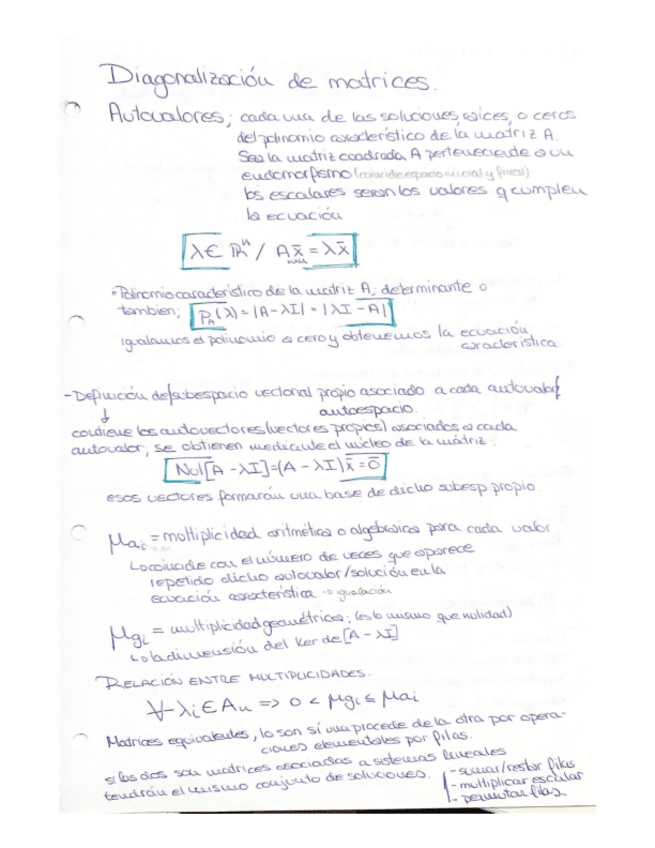 Diagonalización de matrices.
Autovalores; cada una de las soluciones, raíces, o ceros
del polinomio característico de la matriz A.
Sea la matriz cuadrada A perteneciente a un
endomorfismo (coincide espacio inicial y final)
los escalares serán los valores q cumplen
la ecuación
λ ∈ ℝⁿ / A x̄ = λx̄
• Polinomio característico de la matriz A; determinante o
tambien; P_A(λ) = |A - λI| = |λI - A|
igualamos el polinomio a cero y obtenemos la ecuación
característica
- Definición de subespacio vectorial propio asociado a cada autovalor
autoespacio.
↓
contiene los autovectores (vectores propios) asociados a cada
autovalor; se obtienen mediante el núcleo de la mátriz:
Nul[A - λI] = (A - λI) x̄ = 0̄
esos vectores formarán una base de dicho subesp propio
μa_i = multiplicidad aritmética o algebraica para cada valor
↳ coincide con el número de veces que aparece
repetido dicho autovalor/solución en la
ecuación característica → igualación
μg_i = multiplicidad geométrica; (es lo mismo que nulidad)
↳ la dimensión del Ker de [A - λI]
RELACIÓN ENTRE MULTIPLICIDADES.
∀ λi ∈ An => 0 < μgi ≤ μai
Matrices equivalentes, lo son si una procede de la otra por opera-
ciones elementales por filas.
si las dos son matrices asociadas a sistemas lineales
tendrán el mismo conjunto de soluciones.
- sumar/restar filas
- multiplicar escalar
- permutar filas